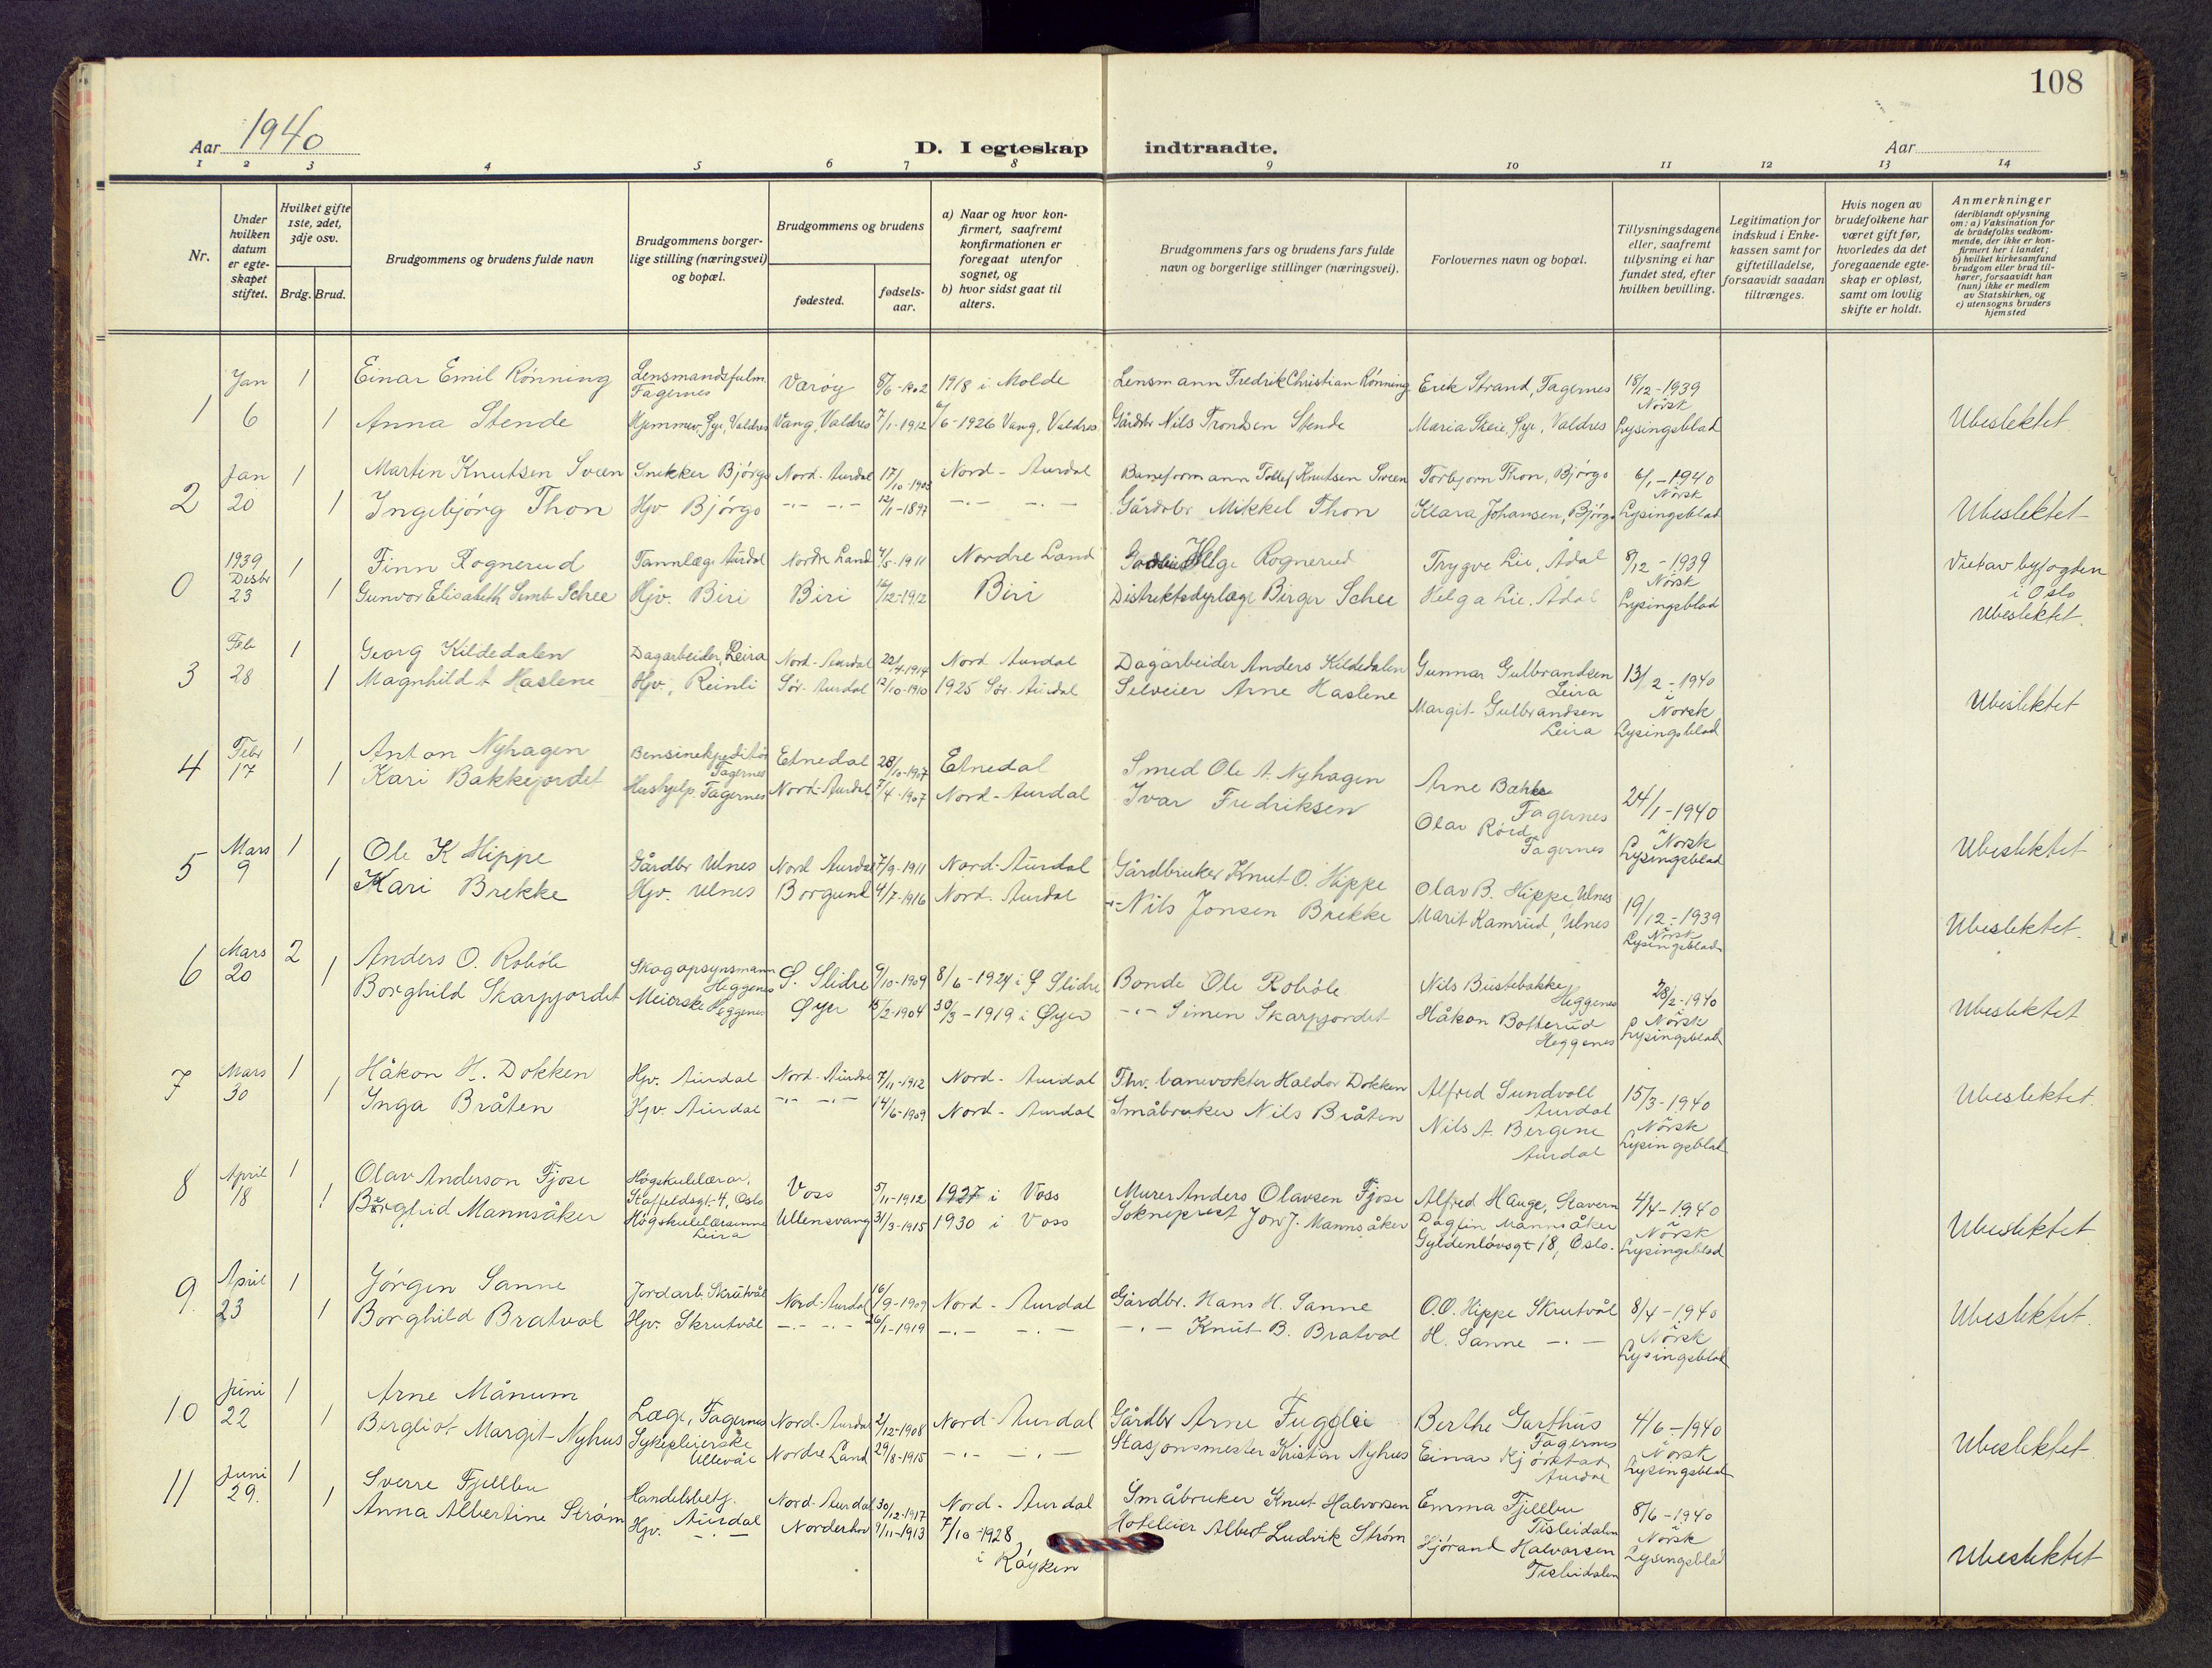 108
Aar 1940
D. I egteskap indtraadte.
Aar
1 2 3 4 5 6 7 8 9 10 11 12 13 14
Nr.
Under hvilken datum er egteskapet stiftet.
Hvilket gifte 1ste, 2det, 3dje osv.
Brdg. Brud.
Brudgommens og brudens fulde navn
Brudgommens borgerlige stilling (næringsvei) og bopæl.
Brudgommens og brudens
fødested.
fødselsaar.
a) Naar og hvor konfirmert, saafremt konfirmationen er foregaat utenfor sognet, og
b) hvor sidst gaat til alters.
Brudgommens fars og brudens fars fulde navn og borgerlige stillinger (næringsvei).
Forlovernes navn og bopæl.
Tillysningsdagene eller, saafremt tillysning ei har fundet sted, efter hvilken bevilling.
Legitimation for indskud i Enkekassen samt for giftetilladelse, forsaavidt saadan tiltrænges.
Hvis nogen av brudefolkene har været gift før, hvorledes da det foregaaende egteskap er opløst, samt om lovlig skifte er holdt.
Anmerkninger (deriblandt oplysning om: a) Vaksination for de brudefolks vedkommende, der ikke er konfirmert her i landet; b) hvilket kirkesamfund brudgom eller brud tilhører, forsaavidt han (hun) ikke er medlem av Statskirken, og c) utensogns bruders hjemsted
1 Jan 6 1 Einar Emil Rønning Lensmandsfulm. Fagernes Værøy 8/6-1902 1918 i Molde Lensmann Fredrik Christian Rønning Erik Strand, Fagernes 18/12-1939 i Norsk
1 Anna Stende Hjemmev. Øye, Valdres Vang, Valdres 7/1-1912 6/6-1926 Vang, Valdres Gårdbr Nils Trondsen Stende Maria Steie, Øye, Valdres Lysingsblad Ubeslektet
2 Jan 20 1 Martin Knutsen Sveen Snekker Bjørgo Nord-Aurdal 17/10-1903 Nord-Aurdal Baneformann Tollef Knutsen Sveen Torbjørn Thon, Bjørgo 6/1-1940 i Norsk
1 Ingebjørg Thon Hjv Bjørgo -"- -"- 12/1-1897 -"- -"- Gårdbr Mikkel Thon Klara Johansen, Bjørgo Lysingsblad Ubeslektet
0 1939 Desbr 23 1 Finn Rognerud Tannlæge Aurdal Nordre Land 4/5-1911 Nordre Land Helge Rognerud Trygve Lie, Ådal 8/12-1939 i Norsk Viet av byfogden i Oslo
1 Gunvor Elisabeth Semb Schee Hjv. Biri Biri 16/12-1912 Biri Distriktsdyrlæge Birger Schee Helga Lie, Ådal Lysingsblad Ubeslektet.
3 Feb 28 1 Georg Kildedalen Dagarbeider, Leira Nord-Aurdal 22/4-1914 Nord Aurdal Dagarbeider Anders Kildedalen Gunnar Gulbrandsen Leira 13/2-1940 i Norsk
1 Magnhild A Haslene Hjv., Reinli Sør-Aurdal 12/10-1910 1925 Sør-Aurdal Selveier Arne Haslene Margit Gulbrandsen Leira Lysingsblad Ubeslektet
4 Febr 17 1 Anton Nyhagen Bensinekspeditør Fagernes Etnedal 28/10-1907 Etnedal Smed Ole A. Nyhagen Arne Bakke Fagernes 24/1-1940 i Norsk
1 Kari Bakkejordet Hushjelp. Fagernes Nord-Aurdal 7/4-1907 Nord-Aurdal Ivar Fredriksen Olav Fagernes Lysingsblad Ubeslektet
5 Mars 9 1 Ole K Hippe Gårdbr Ulnes Nord Aurdal 7/9-1911 Nord-Aurdal Gårdbruker Knut O. Hippe Olav B. Hippe Ulnes 19/12-1939 i Norsk
1 Kari Brekke Hjv. Ulnes Borgund 4/7-1916 Nord-Aurdal -"- Nils Jonsen Brekke Marit Kamrud, Ulnes Lysingsblad Ubeslektet.
6 Mars 20 2 Anders O. Robøle Skogopsynsmann Heggenes S. Slidre 9/10-1909 8/6-1924 i S Slidre Bonde Ole Robøle Nils Bustebakke Heggenes 28/2-1940 i Norsk
1 Borghild Skarpjordet Meierske Heggenes Øyer 15/2-1904 30/3-1919 i Øyer -"- Simen Skarpjordet Håkon Bolterud Heggenes Lysingsblad Ubeslektet
7 Mars 30 1 Håkon H. Dokken Hjv. Aurdal Nord-Aurdal 7/11-1912 Nord-Aurdal Fhv. banevokter Haldor Dokken Alfred Sundvoll Aurdal 15/3-1940 i Norsk
1 Inga Bråten Hjv. Aurdal -"- -"- 14/6-1909 Nord-Aurdal Småbruker Nils Bråten Nils A. Bergene Aurdal Lysingsblad Ubeslektet.
8 April 18 1 Olav Anderson Fjose Høgskulelærar, Staffeldsgt. 4, Oslo Voss 5/11-1912 1927 i Voss Murer Anders Olavsen Fjose Alfred Hauge, Stavern 4/4-1940 i Norsk
1 Bergliid Mannsåker Høgskulelærarinne Leira Ullensvang 31/3-1915 1930 i Voss Sokneprest Jon J. Mannsåker Dagfin Mannsåker Gyldenløvsgt 18, Oslo. Lysingsblad Ubeslektet.
9. April 23 1 Jørgen Sanne Jordarb. Skrutvål Nord-Aurdal 16/9-1909 Nord-Aurdal Gårdbr. Hans H. Sanne O.O. Hippe Skrutvål 8/4-1940 i Norsk
1 Borghild Bratvol Hjv. Skrutvål -"- -"- 26/1-1919 -"- -"- -"- Knut B. Bratvol H. Sanne -"- Lysingsblad Ubeslektet.
10 Juni 22 1 Arne Månum Læge, Fagernes Nord-Aurdal 2/12-1908 Nord-Aurdal Gårdbr Arne Fugglei Berthe Garthus Fagernes 4/6-1940 i Norsk
1 Bergliot Margit Nyhus Sykepleierske Ullevål Nordre Land 29/8-1915 -"- -"- Stasjonsmester Kristian Nyhus Einar Kjørstad Aurdal Lysingsblad Ubeslektet.
11 Juni 29. 1 Sverre Fjellbu Handelsbetj. Aurdal Nord-Aurdal 30/12-1917 Nord-Aurdal Småbruker Knut Halvorsen Emma Fjellbu Tisleidalen 8/6-1940 i Norsk
1 Anna Albertine Strøm Hjv. -"- Norderhov 9/11-1913 7/10-1928 i Røyken Hoteleier Albert Ludvik Strøm Hjørand Halvorsen Tisleidalen Lysingsblad Ubeslektet